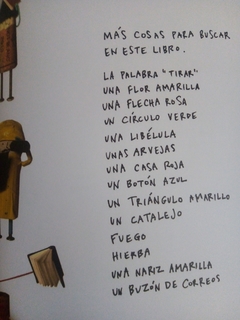 MÁS COSAS PARA BUSCAR
EN ESTE LIBRO.
LA PALABRA "TIRAR"
UNA FLOR AMARILLA
UNA FLECHA ROSA
UN CÍRCULO VERDE
UNA LIBÉLULA
UNAS ARVEJAS
UNA CASA ROJA
UN BOTÓN AZUL
UN TRIÁNGULO AMARILLO
UN CATALEJO
FUEGO
HIERBA
UNA NARIZ AMARILLA
UN BUZÓN DE CORREOS